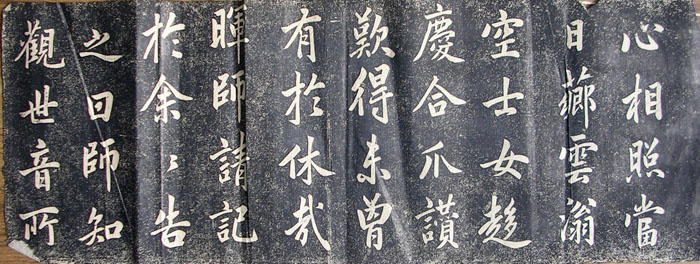 心相照當
日薌雲滃
空士女趍
慶合爪讃
歎得未曽
有於休哉
暉師請記
於余〻告
之曰師知
觀世音所